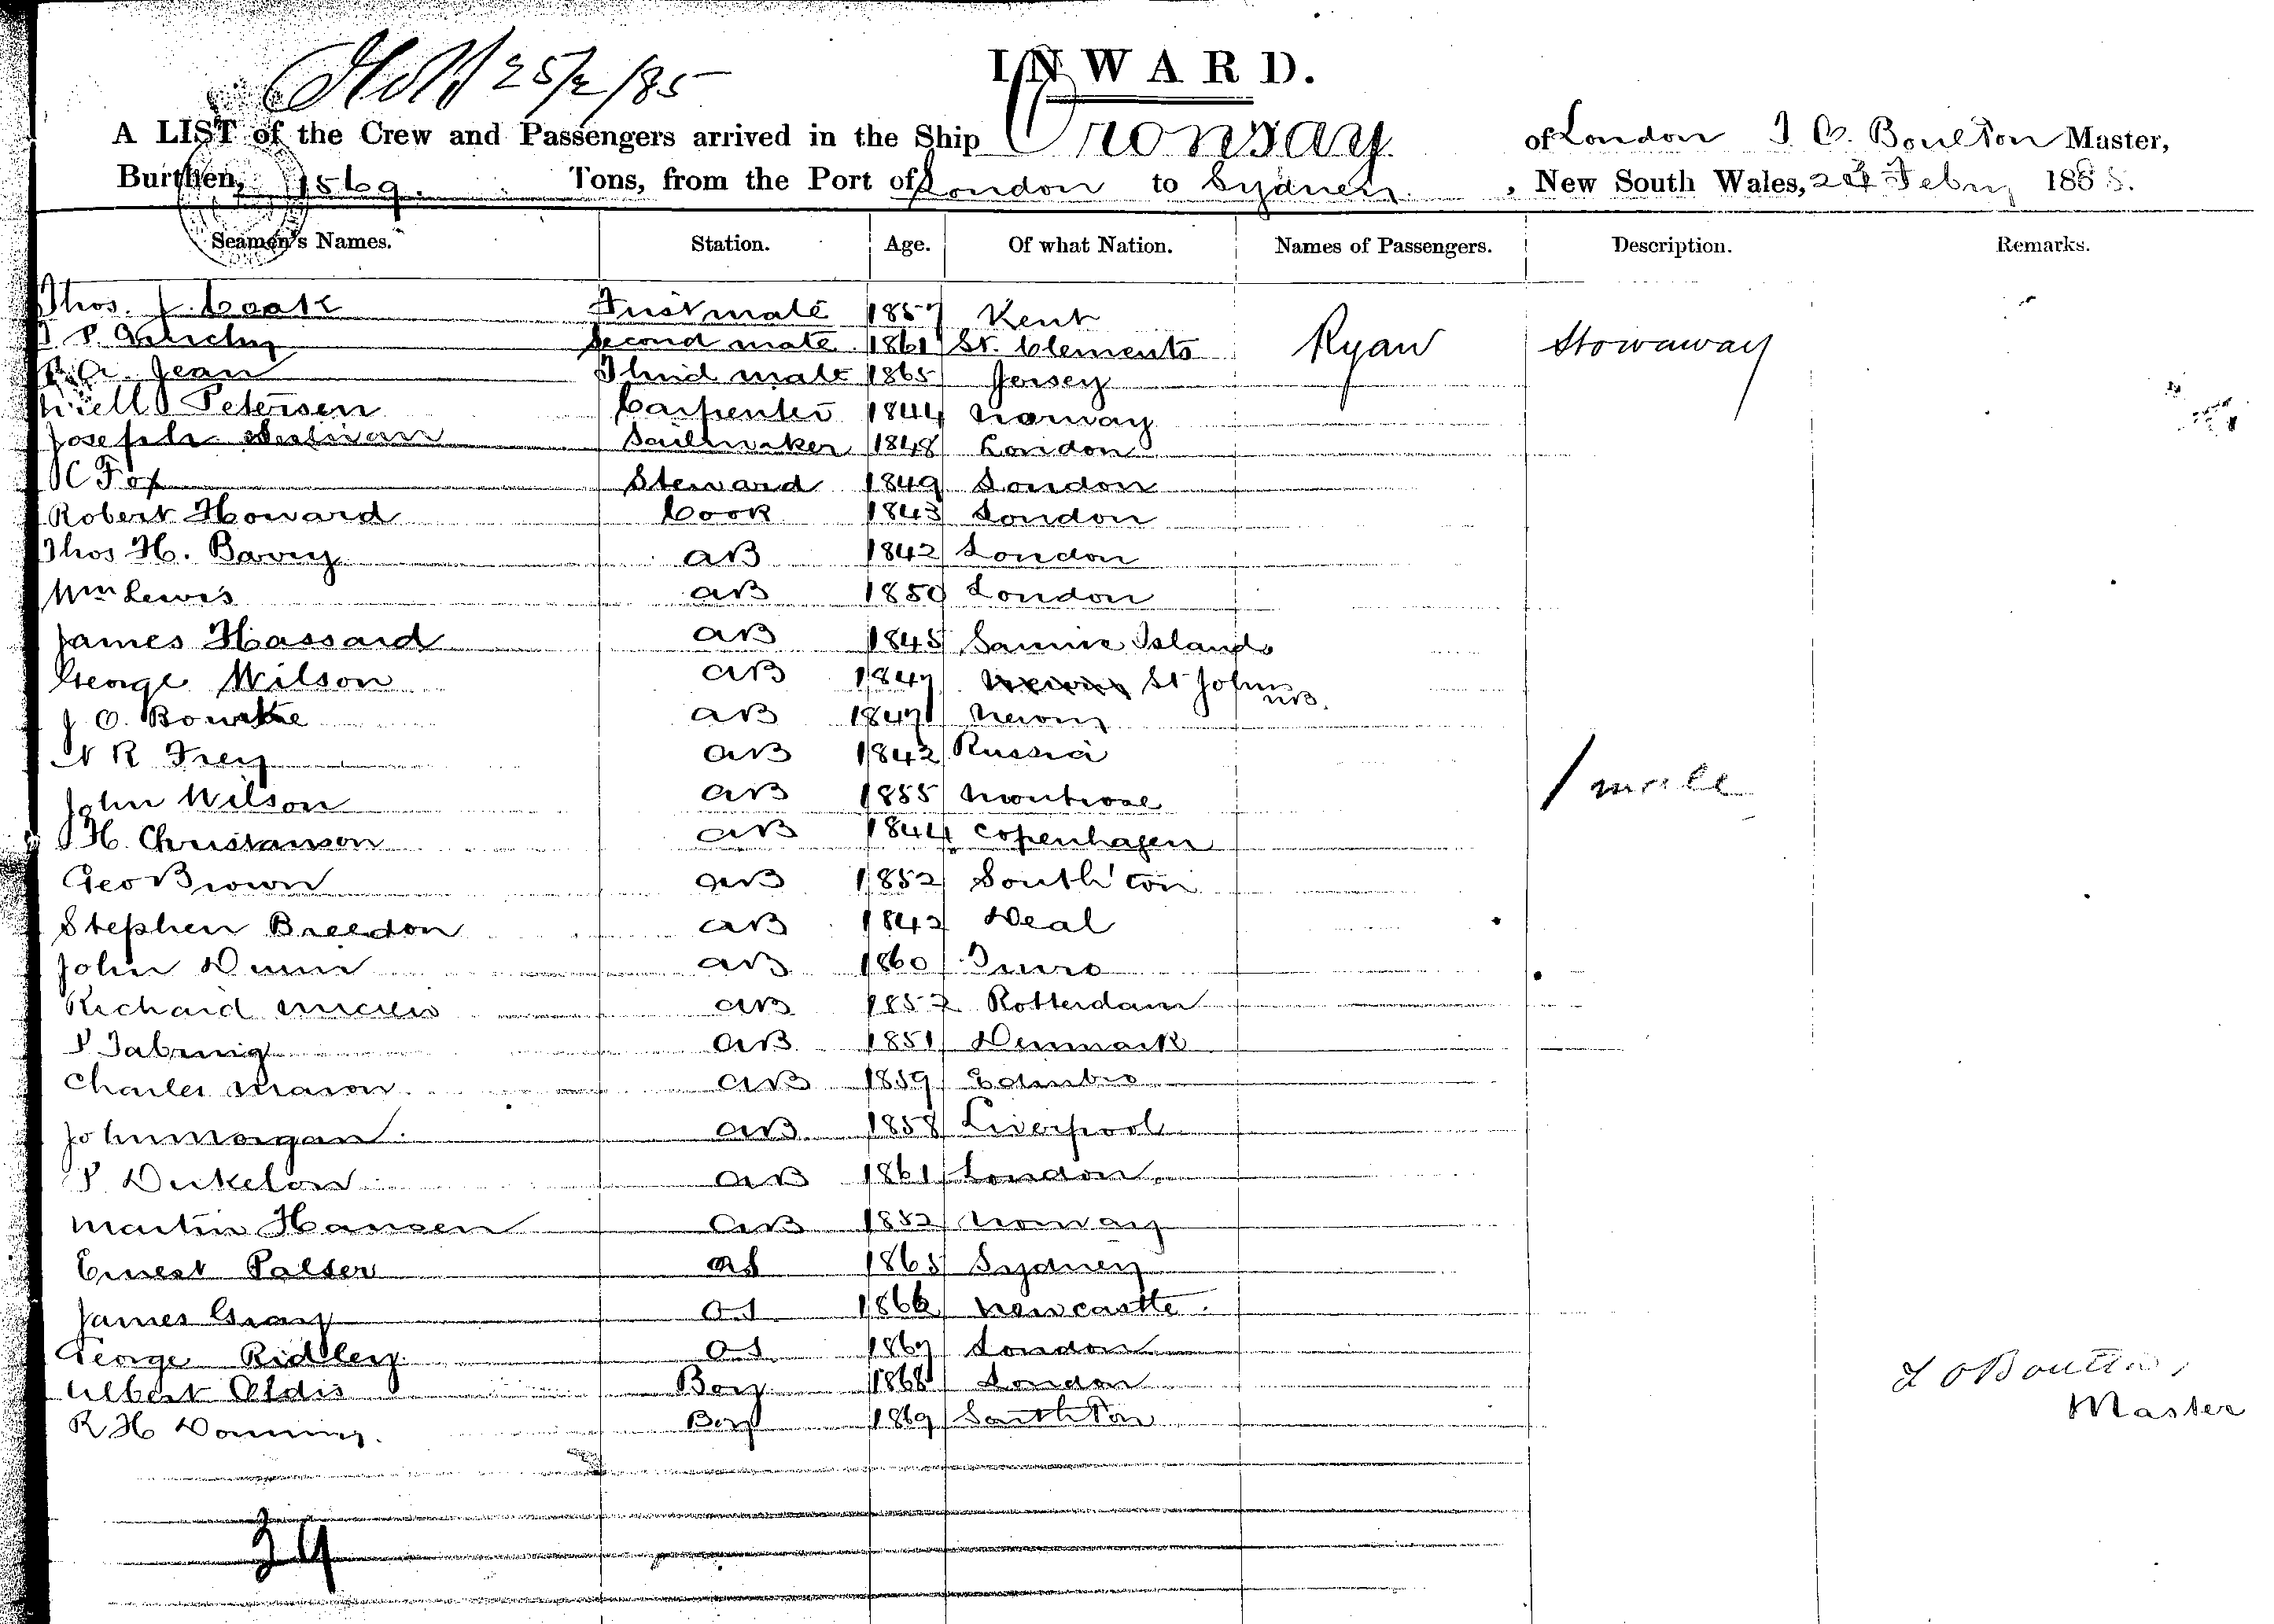 25/2/85
INWARD.
A LIST of the Crew and Passengers arrived in the Ship Oronsay of London J. O. Boulton Master,
Burthen, 1569. Tons, from the Port of London to Sydney, New South Wales, 24 Febry 1885.
Seamen's Names. Station. Age. Of what Nation. Names of Passengers. Description. Remarks.
Thos. J. Cook First mate 1857 Kent Ryan Stowaway
Second mate 1861 St. Clements
Jean Third mate 1865 Jersey
Petersen Carpenter 1844 Norway
Joseph Sailmaker 1848 London
Fox Steward 1849 London
Robert Howard Cook 1843 London
Thos H. Barry AB 1842 London
Wm Lewis AB 1850 London
James Hassard AB 1845 Island
George Wilson AB 1847 St Johns NB.
J. O. Bourke AB 1847 Newry
R Frey AB 1842 Russia
John Wilson AB 1855 Montrose 1 male
H. Christanson AB 1844 Copenhagen
Geo Brown AB 1852 South'ton
Stephen Breedon AB 1842 Deal
John Dunn AB 1860 Truro
Richard AB 1857 Rotterdam
P AB 1851 Denmark
Charles Mason AB 1859 Edinbro
John Morgan AB 1858 Liverpool
P AB 1861 London
Martin Hansen AB 1852 Norway
Ernest Palser OS 1865 Sydney
James Gray OS 1866 Newcastle.
George Ridley OS 1867 London
Albert Aldis Boy 1868 London
R H Boy 1869 Southton
J O Boulton
Master